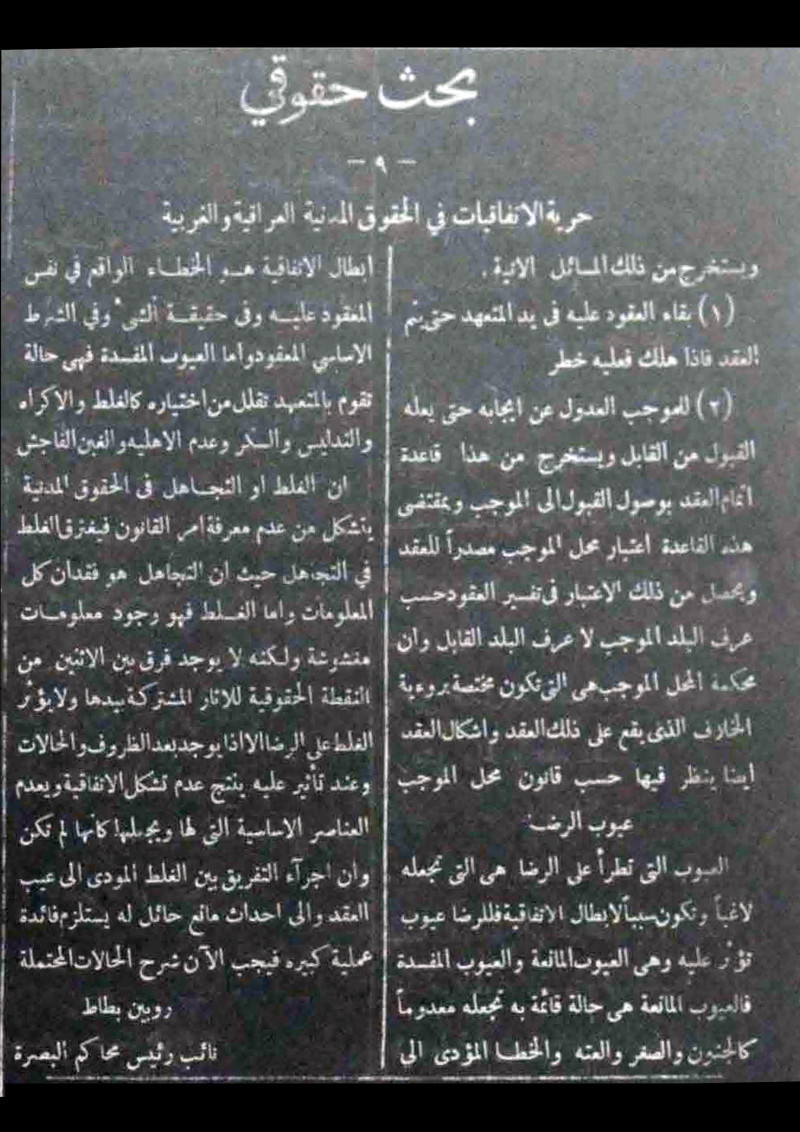 بحث حقوقي
— ٩ —
حرية الاتفاقيات في الحقوق المدنية العراقية والغربية
ويستخرج من ذلك المسائل الاتية .
(١) بقاء العقود عليه فى يد المتعهد حتى يتم
العقد فاذا هلك فعليه خطر
(٢) للموجب العدول عن ايجابه حتى يعله
القبول من القابل ويستخرج من هذا قاعدة
اتمام العقد بوصول القبول الى الموجب وبمقتضى
هذه القاعدة اعتبار محل الموجب مصدراً للعقد
ويحصل من ذلك الاعتبار فى تفسير العقود حسب
عرف البلد الموجب لا عرف البلد القابل وان
محكمة المحل الموجب هى التى تكون مختصة بروءية
الخلاف الذى يقع على ذلك العقد واشكال العقد
ايضا ينظر فيها حسب قانون محل الموجب
عيوب الرضا
العيوب التى تطرأ على الرضا هى التى تجعله
لاغياً وتكون سبباً لابطال الاتفاقية فللرضا عيوب
تؤثر عليه وهى العيوب المانعة والعيوب المفسدة
فالعيوب المانعة هى حالة قائمة به تجعله معدوماً
كالجنون والصغر والعته والخطا المؤدى الى
ابطال الاتفاقية هو الخطاء الواقع في نفس
المعقود عليه وفى حقيقة الشىء وفي الشرط
الاساسي المعقود واما العيوب المفسدة فهى حالة
تقوم بالمتعهد تقلل من اختياره كالغلط والاكراه
والتدليس والسكر وعدم الاهليه والغبن الفاحش
ان الغلط او التجاهل فى الحقوق المدنية
يتشكل من عدم معرفة امر القانون فيفترق الغلط
في التجاهل حيث ان التجاهل هو فقدان كل
المعلومات واما الغلط فهو وجود معلومات
مغشوشة ولكنه لا يوجد فرق بين الاثنين من
النقطة الحقوقية للاثار المشتركة بيدها ولا يؤثر
الغلط على الرضا الا اذا يوجد بعد الظروف والحالات
وعند تأثير عليه ينتج عدم تشكل الاتفاقية ويعدم
العناصر الاساسية التى لها ويجعلها كأنها لم تكن
وان اجرآء التفريق بين الغلط المودى الى عيب
العقد والى احداث مانع حائل له يستلزم فائدة
عملية كبيره فيجب الآن شرح الحالات المحتملة
روبين بطاط
نائب رئيس محاكم البصرة